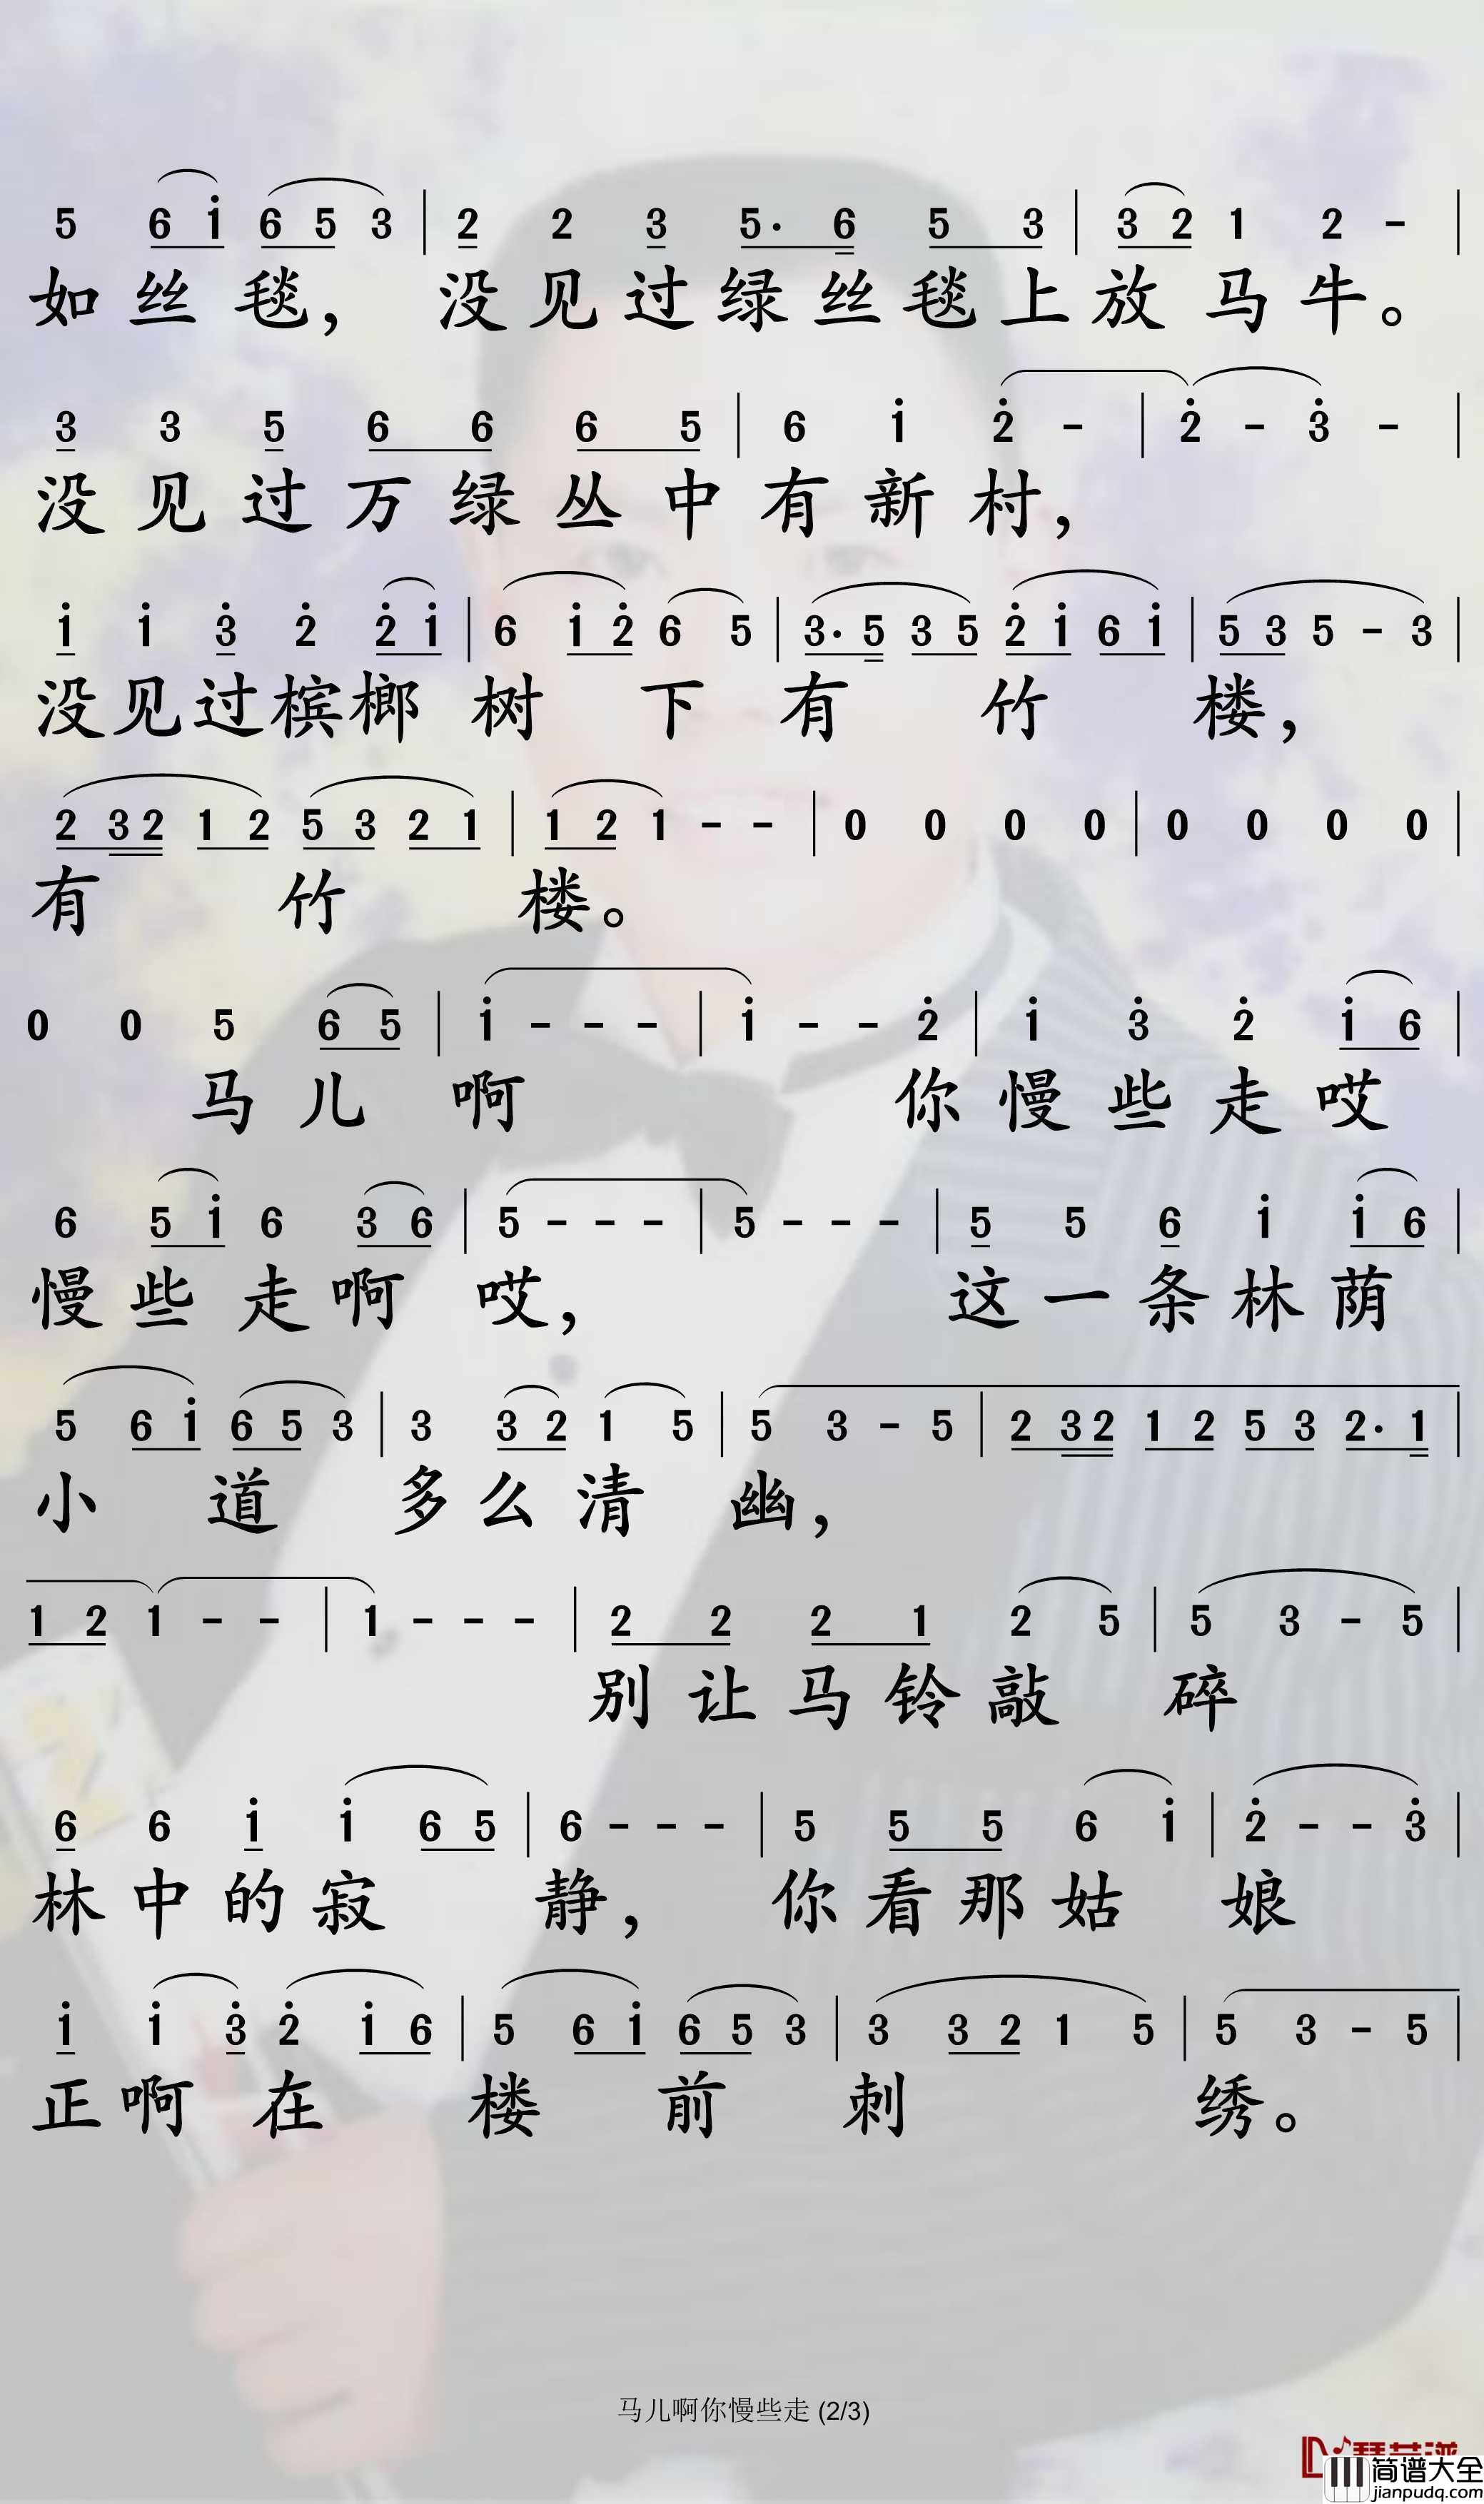 5 6 i 6 5 3 | 2 2 3 5· 6 5 3 | 3 2 1 2 - |
如丝毯，没见过绿丝毯上放马牛。
3 3 5 6 6 6 5 | 6 i 2̇ - | 2̇ - 3̇ - |
没见过万绿丛中有新村，
i i 3̇ 2̇ 2̇ i | 6 i 2̇ 6 5 | 3· 5 3 5 2̇ i 6 i | 5 3 5 - 3 |
没见过槟榔树下有竹楼，
2 3 2 1 2 5 3 2 1 | 1 2 1 - - | 0 0 0 0 | 0 0 0 0 |
有竹楼。
0 0 5 6 5 | i - - - | i - - 2̇ | i 3̇ 2̇ i 6 |
马儿啊你慢些走哎
6 5 i 6 3 6 | 5 - - - | 5 - - - | 5 5 6 i i 6 |
慢些走啊哎，这一条林荫
5 6 i 6 5 3 | 3 3 2 1 5 | 5 3 - 5 | 2 3 2 1 2 5 3 2· 1 |
小道多么清幽，
1 2 1 - - | 1 - - - | 2 2 2 1 2 5 | 5 3 - 5 |
别让马铃敲碎
6 6 i i 6 5 | 6 - - - | 5 5 5 6 i | 2̇ - - 3̇ |
林中的寂静，你看那姑娘
i i 3̇ 2̇ i 6 | 5 6 i 6 5 3 | 3 3 2 1 5 | 5 3 - 5 |
正啊在楼前刺绣。
马儿啊你慢些走 (2/3)
简谱大全
jianpudq.com